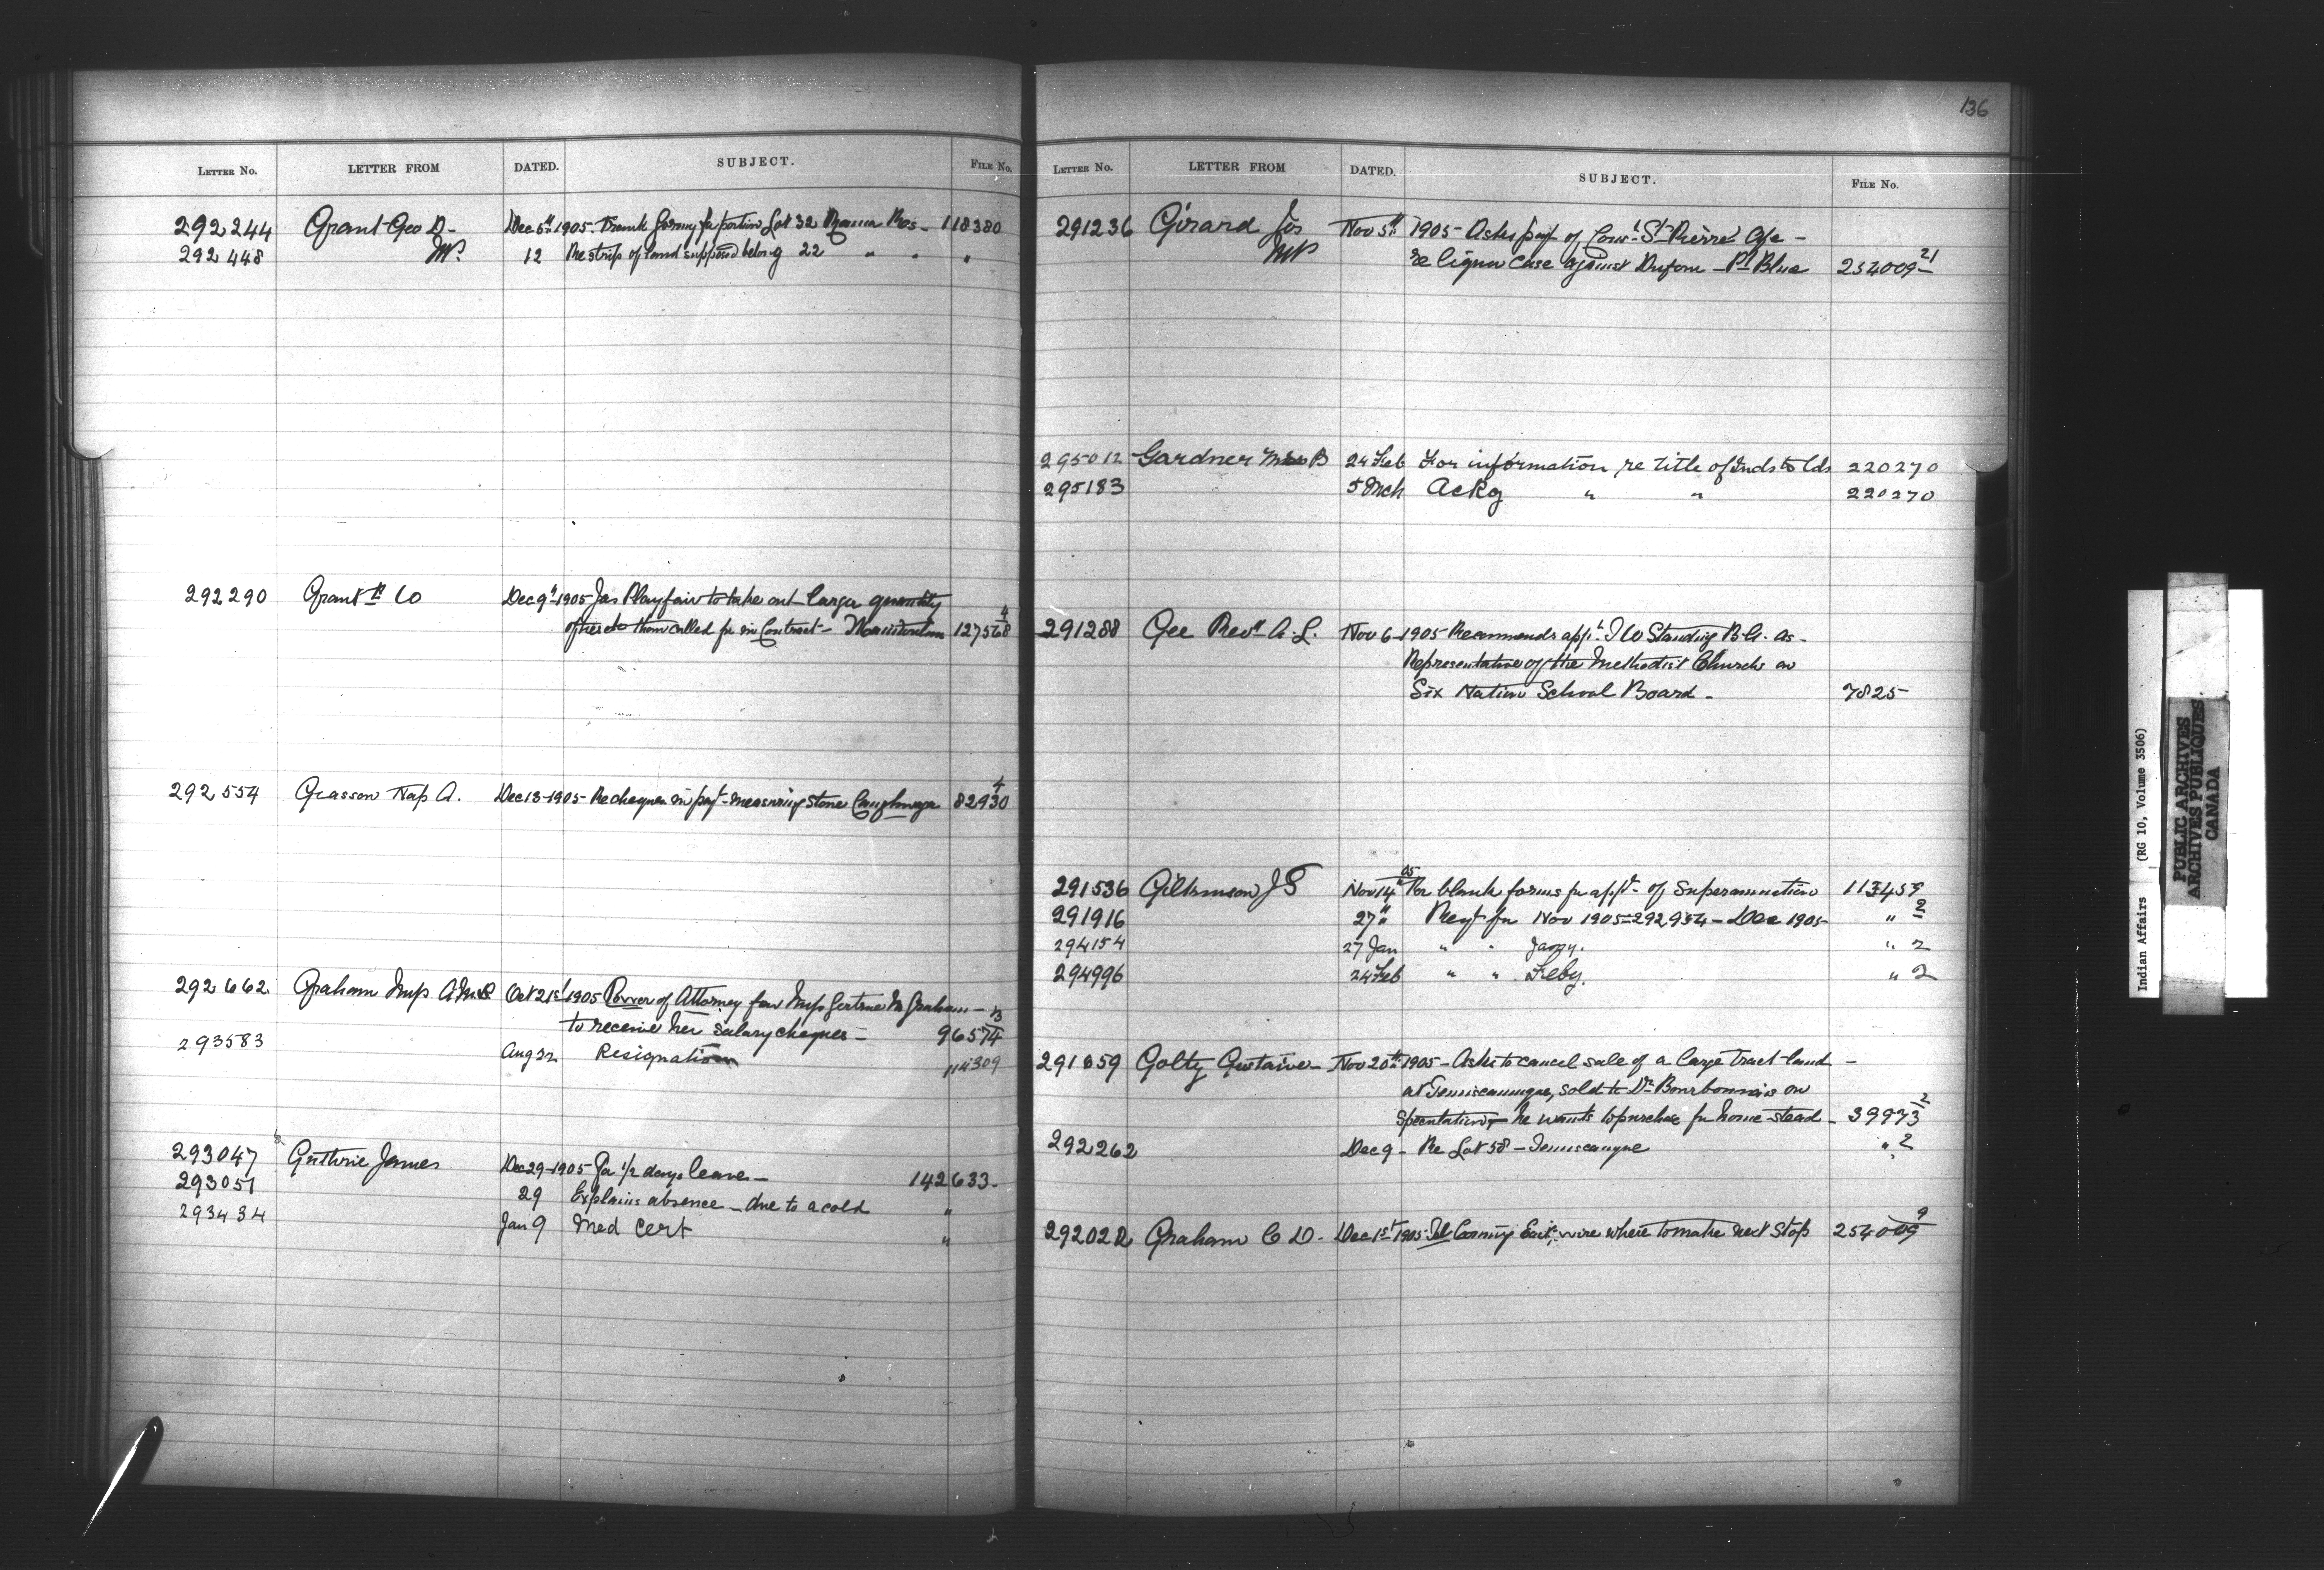 LETTER No. LETTER FROM DATED. SUBJECT. FILE No.
292244 Grant Geo D- Dec 5th 1905. Frank Gorney for portion Lot 32 Res- 118380
292448 MP. 12 Re strip of land supposed belong 22 " " "
292290 Grant & Co Dec 9th 1905 Jas Playfair to take out larger quantity
of ties than called for in Contract- 127568 4
292554 Grasson Nap A. Dec 13-1905- Re cheques in payt- measuring stone Caughnaga 82930 4
292662 Graham Miss Oct 21st 1905 Power of Attorney from Miss Gertrude M Graham-
to receive her salary cheques- 96574 13
293583 Aug 22 Resignation 114309
293047 Guthrie James Dec 29-1905 For 1/2 days leave- 142633-
293051 29 Explains absence - due to a cold "
293434 Jan 9 Med Cert "
136
LETTER No. LETTER FROM DATED. SUBJECT. FILE No.
291236 Girard Jos Nov 5th 1905- Asks payt of St-Pierre
MP re liquor case against Dufour - Pt Blue 254009 21
295012 Gardner B 24 Feb For information re title of Inds to lds 220270
295183 5 Mch Ackg " " 220270
291288 Gee Revd A. L. Nov 6-1905 Recommends appt- Standing B.A. as-
Representative of the Methodist Church on
Six Nation School Board- 7825-
291536 Gilkinson J S Nov 14th 05 For blank forms for appt- of Superannuation 113459
291916 27" Rept for Nov 1905=292934- Dec 1905- " 2
294154 27 Jan " " Jany. " 2
294996 24 Feb " " Feby. " 2
291659 Golty Gustaive- Nov 20th 1905- Asks to cancel sale of a large tract land-
at Temiscamingue, sold to Dr Bourbonnais on
Speculation- he wants to purchase for home-stead- 39973 2
292262 Dec 9- Re Lot 58- Temiscangue " 2
292022 Graham C D- Dec 1st 1905- Tel Coming East, wire where to make next Stop 254009 9
Indian Affairs (RG 10, Volume 3506)
PUBLIC ARCHIVES
ARCHIVES PUBLIQUES
CANADA